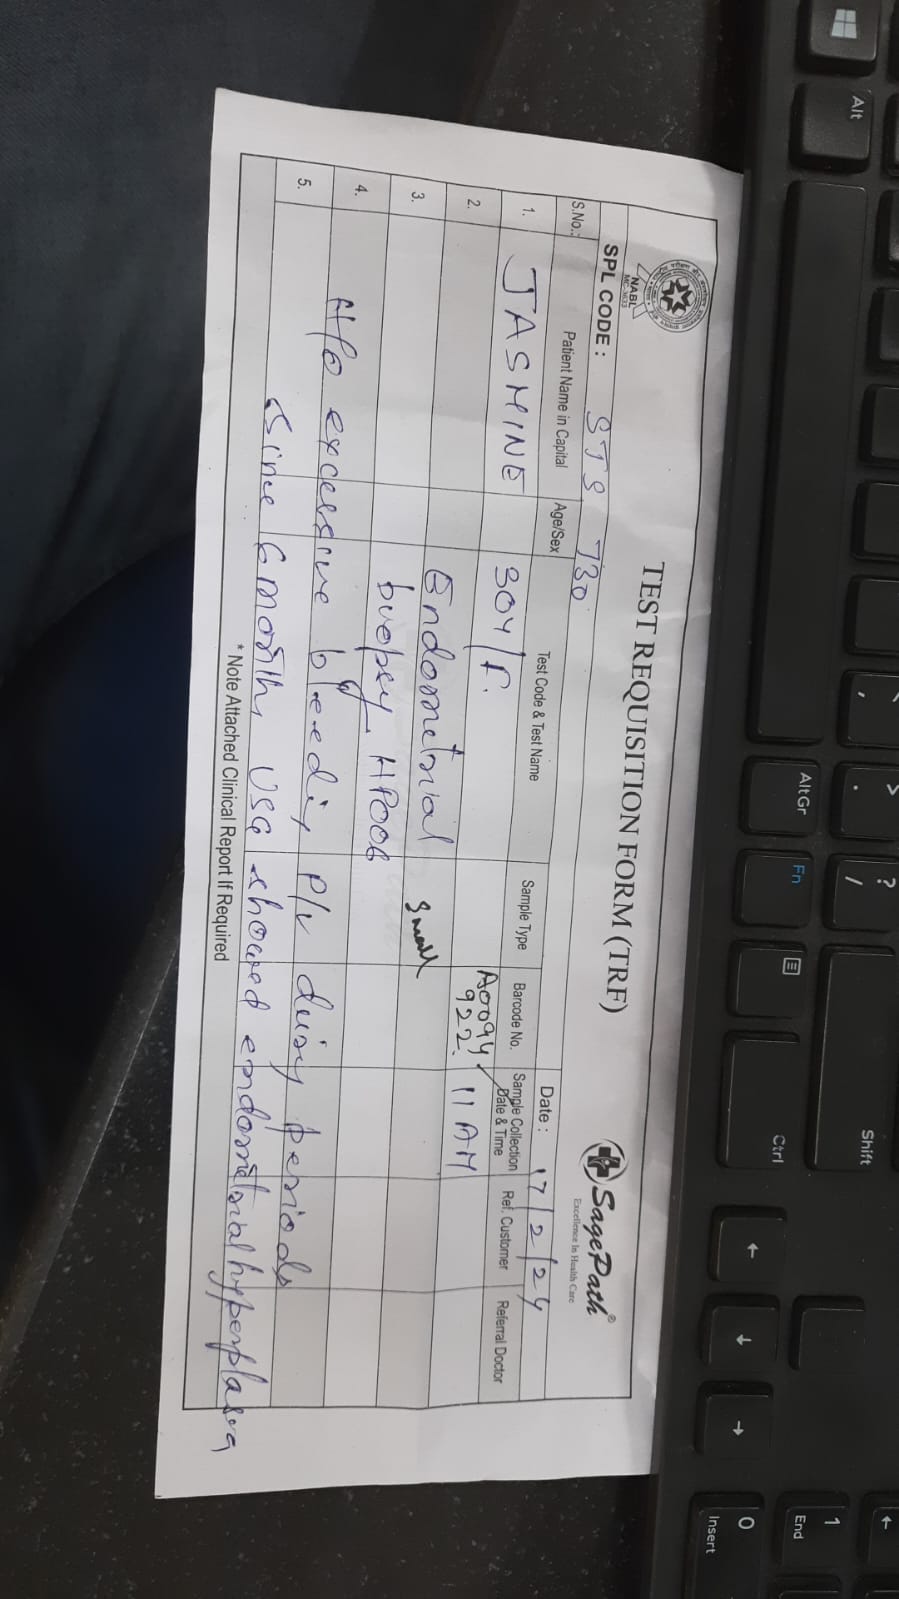 TEST REQUISITION FORM (TRF)
SagePath®
Excellence In Health Care
NABL
SPL CODE : STS 730
Date : 17/2/24
S.No.: Patient Name in Capital Age/Sex Test Code & Test Name Sample Type Barcode No. Sample Collection Date & Time Ref. Customer Referral Doctor
1. JASMINE 30y/F. A0094922. 11 AM
2. Endometrial
3. buopsy, HP006 small
4. H/o excessive bleeding P/v duing periods
5. since 6 month, USG showed endometrial hyperplasia
* Note Attached Clinical Report If Required
Alt
AltGr
Fn
Ctrl
Shift
,
>
.
?
/
0
Insert
1
End
←
↓
→
←